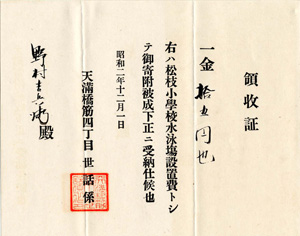 領收証
一金拾五円也
右ハ松枝小學校水泳塲設置費トシ
テ御寄附被成下正ニ受納仕候也
昭和二年十二月一日
天滿橋筋四丁目 世話係
野村 殿